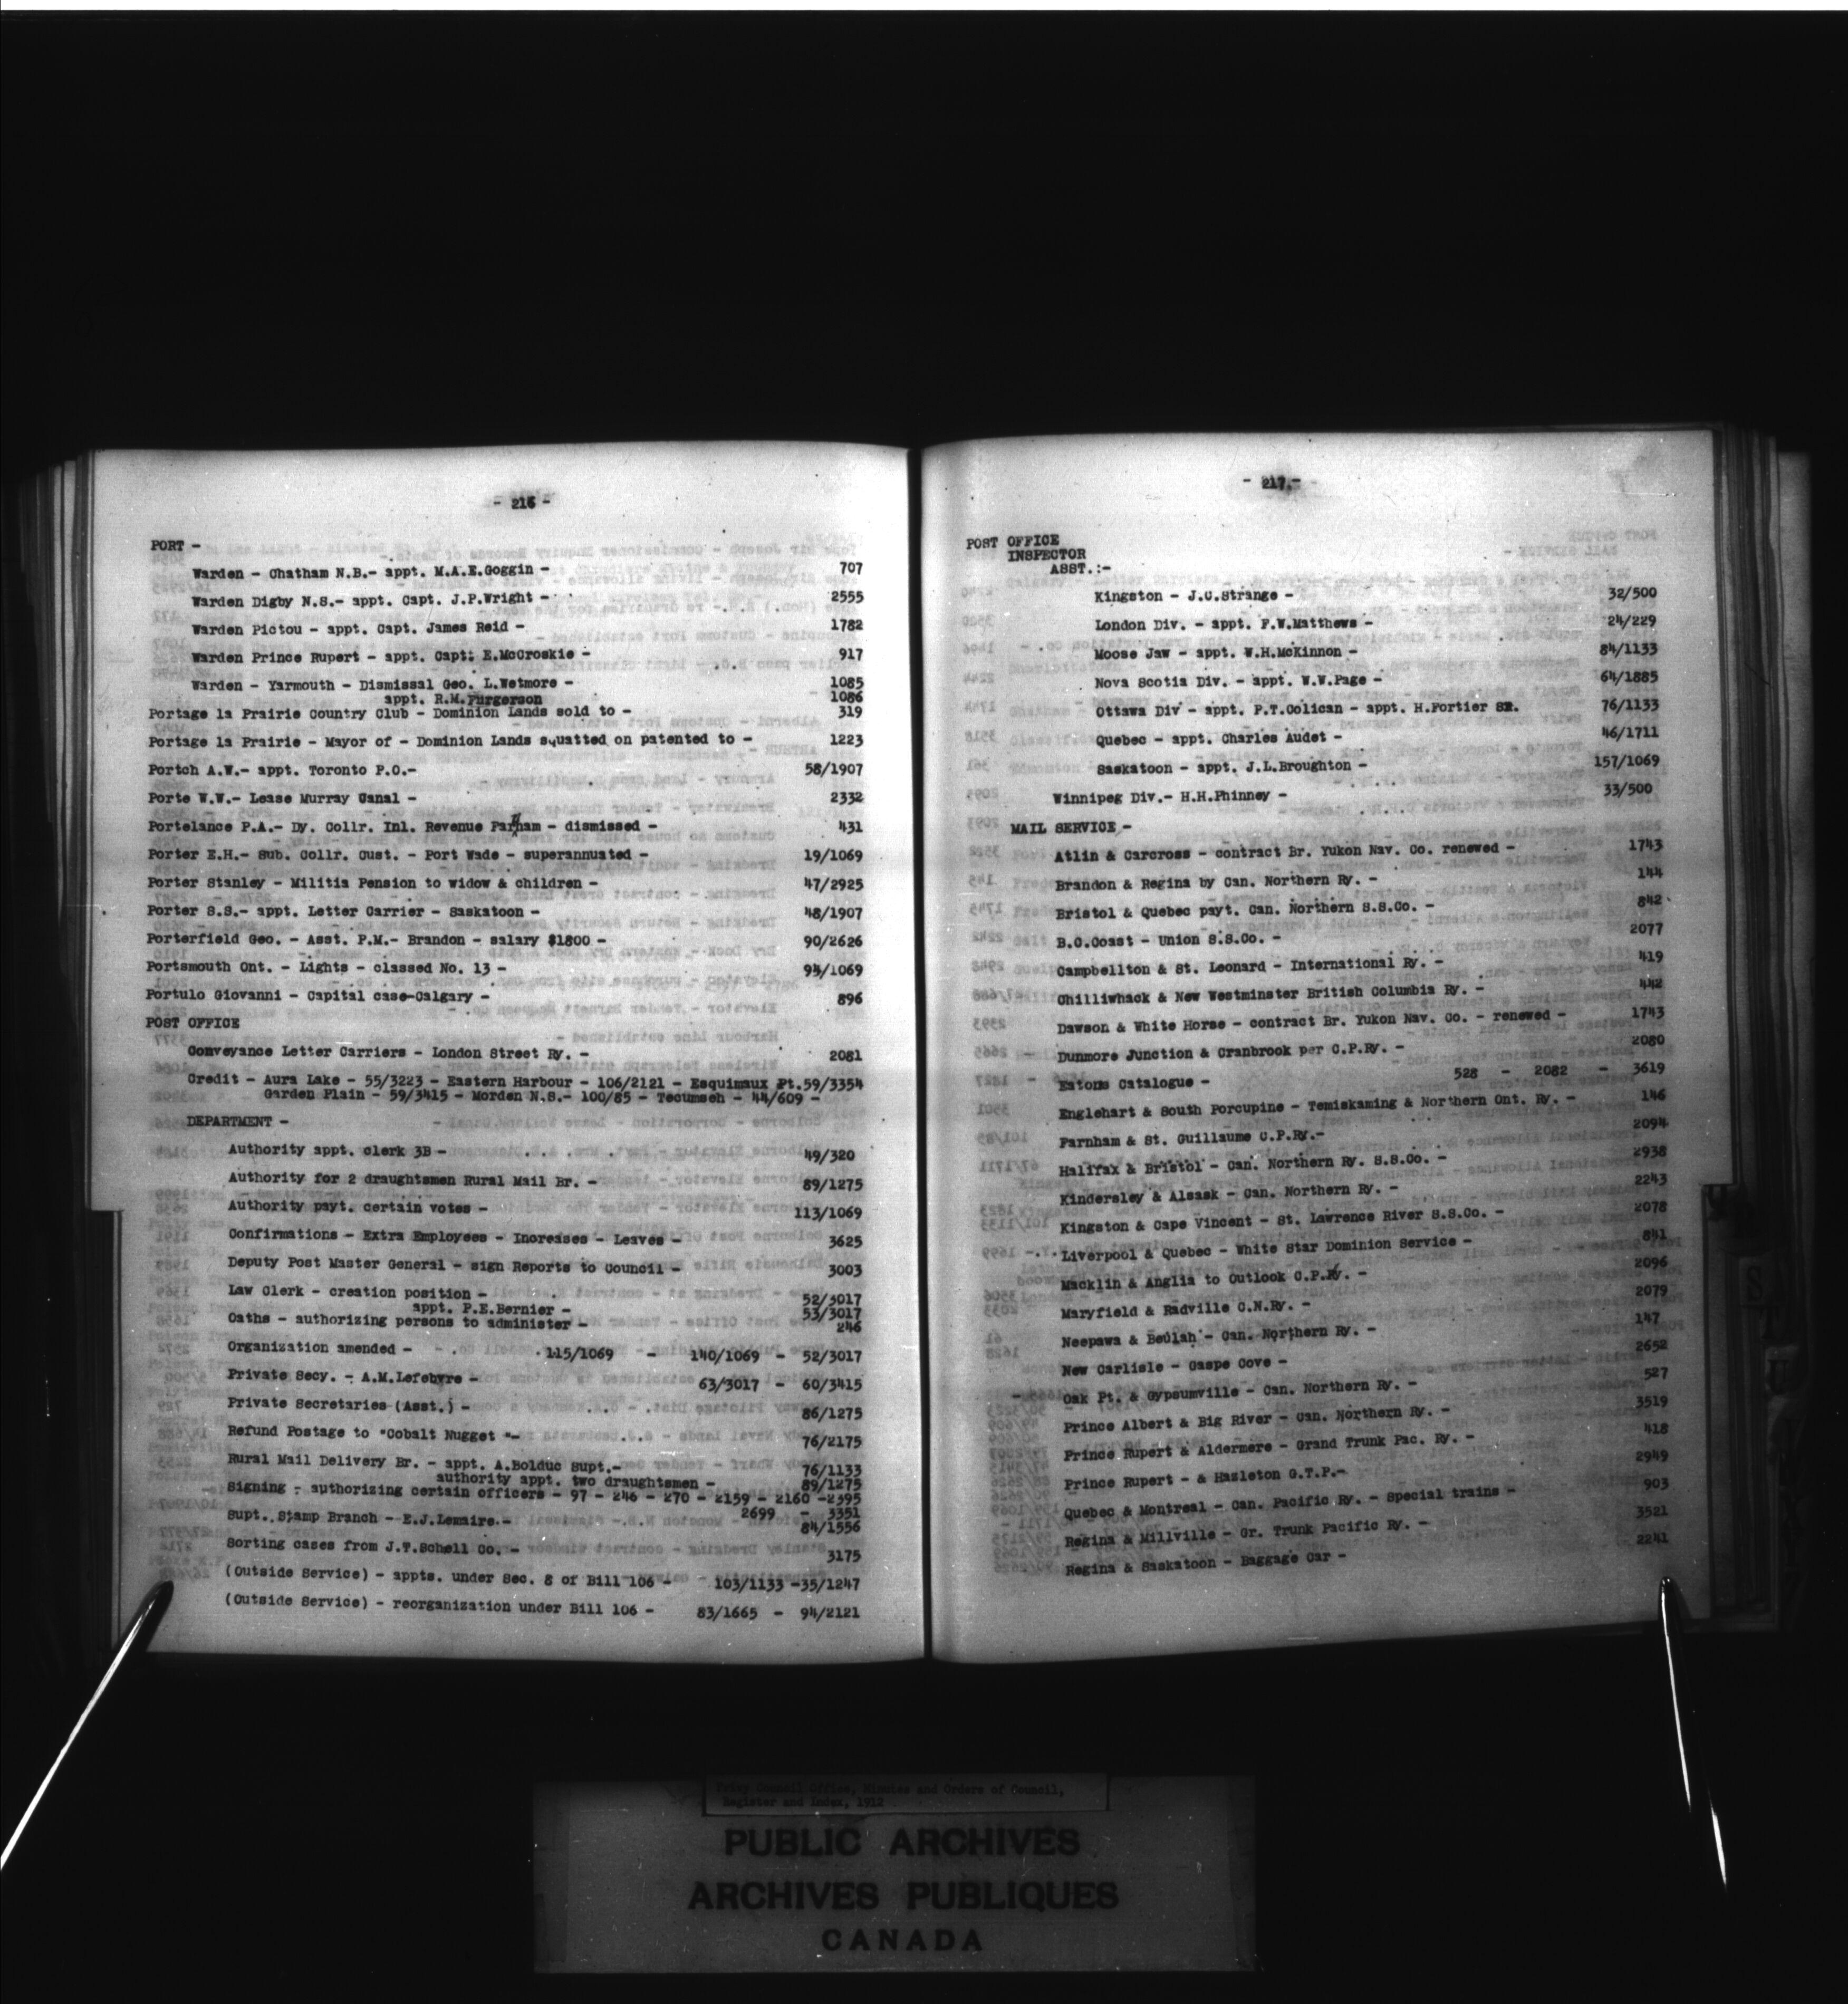 - 216 -
PORT -
Warden - Chatham N.B.- appt. M.A.E.Goggin - 707
Warden Digby N.S.- appt. Capt. J.P.Wright - 2555
Warden Pictou - appt. Capt. James Reid - 1782
Warden Prince Rupert - appt. Capt. E.McCroskie - 917
Warden - Yarmouth - Dismissal Geo. L.Wetmore - 1085
appt. R.M.Furgerson 1086
Portage la Prairie Country Club - Dominion Lands sold to - 319
Portage la Prairie - Mayor of - Dominion Lands squatted on patented to - 1223
Portch A.W.- appt. Toronto P.O.- 58/1907
Porte W.W.- Lease Murray Canal - 2332
Portelance P.A.- Dy. Collr. Inl. Revenue Parham - dismissed - 431
Porter E.H.- Sub. Collr. Cust. - Port Wade - superannuated - 19/1069
Porter Stanley - Militia Pension to widow & children - 47/2925
Porter S.S.- appt. Letter Carrier - Saskatoon - 48/1907
Porterfield Geo. - Asst. P.M.- Brandon - salary $1800 - 90/2626
Portsmouth Ont. - Lights - classed No. 13 - 94/1069
Portulo Giovanni - Capital case-Calgary - 896
POST OFFICE
Conveyance Letter Carriers - London Street Ry. - 2081
Credit - Aura Lake - 55/3223 - Eastern Harbour - 106/2121 - Esquimaux Pt.59/3354
Garden Plain - 59/3415 - Morden N.S.- 100/85 - Tecumseh - 44/609 -
DEPARTMENT -
Authority appt. clerk 3B - 49/320
Authority for 2 draughtsmen Rural Mail Br. - 89/1275
Authority payt. certain votes - 113/1069
Confirmations - Extra Employees - Increases - Leaves - 3625
Deputy Post Master General - sign Reports to Council - 3003
Law Clerk - creation position - 52/3017
appt. P.E.Bernier - 53/3017
Oaths - authorizing persons to administer - 246
Organization amended - 115/1069 - 140/1069 - 52/3017
Private Secy. - A.M.Lefebvre - 63/3017 - 60/3415
Private Secretaries (Asst.) - 86/1275
Refund Postage to "Cobalt Nugget "- 76/2175
Rural Mail Delivery Br. - appt. A.Bolduc Supt.- 76/1133
authority appt. two draughtsmen - 89/1275
Signing - authorizing certain officers - 97 - 246 - 270 - 2159 - 2160 -2395
2699 - 3351
Supt. Stamp Branch - E.J.Lemaire.- 84/1556
Sorting cases from J.T.Schell Co. - 3175
(Outside Service) - appts. under Sec. 8 of Bill 106 - 103/1133 -35/1247
(Outside Service) - reorganization under Bill 106 - 83/1665 - 94/2121
- 217.-
POST OFFICE
INSPECTOR
ASST.:-
Kingston - J.C.Strange - 32/500
London Div. - appt. F.W.Matthews - 24/229
Moose Jaw - appt. W.H.McKinnon - 84/1133
Nova Scotia Div. - appt. W.W.Page - 64/1885
Ottawa Div - appt. P.T.Colican - appt. H.Fortier SR. 76/1133
Quebec - appt. Charles Audet - 46/1711
Saskatoon - appt. J.L.Broughton - 157/1069
Winnipeg Div.- H.H.Phinney - 33/500
MAIL SERVICE -
Atlin & Carcross - contract Br. Yukon Nav. Co. renewed - 1743
Brandon & Regina by Can. Northern Ry. - 144
Bristol & Quebec payt. Can. Northern S.S.Co. - 842
B.C.Coast - Union S.S.Co. - 2077
Campbellton & St. Leonard - International Ry. - 419
Chilliwhack & New Westminster British Columbia Ry. - 442
Dawson & White Horse - contract Br. Yukon Nav. Co. - renewed - 1743
Dunmore Junction & Cranbrook per C.P.Ry. - 2080
Eatons Catalogue - 528 - 2082 - 3619
Englehart & South Porcupine - Temiskaming & Northern Ont. Ry. - 146
Farnham & St. Guillaume C.P.Ry.- 2094
Halifax & Bristol - Can. Northern Ry. S.S.Co. - 2938
Kindersley & Alsask - Can. Northern Ry. - 2243
Kingston & Cape Vincent - St. Lawrence River S.S.Co. - 2078
Liverpool & Quebec - White Star Dominion Service - 841
Macklin & Anglia to Outlook C.P.Ry. - 2096
Maryfield & Radville C.N.Ry. - 2079
Neepawa & Beulah - Can. Northern Ry. - 147
New Carlisle - Gaspe Cove - 2652
Oak Pt. & Gypsumville - Can. Northern Ry. - 527
Prince Albert & Big River - Can. Northern Ry. - 3519
Prince Rupert & Aldermere - Grand Trunk Pac. Ry. - 418
Prince Rupert - & Hazleton G.T.P.- 2949
Quebec & Montreal - Can. Pacific Ry. - Special trains - 903
Regina & Millville - Gr. Trunk Pacific Ry. - 3521
Regina & Saskatoon - Baggage Car - 2241
Privy Council Office, Minutes and Orders of Council,
Register and Index, 1912
PUBLIC ARCHIVES
ARCHIVES PUBLIQUES
CANADA